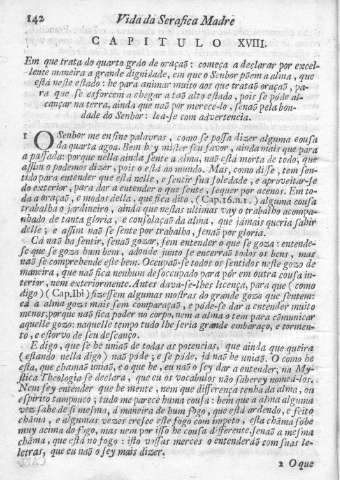 142 Vida da Serafica Madre
CAPITULO XVIII.
Em que trata do quarto gráo de oraçaõ: começa a declarar por excel-
lente maneira a grande dignidade, em que o Senhor põem a alma, que
està neste estado: he para animar muito aos que trataõ oraçaõ, pa-
ra que se esforcem a chegar a taõ alto estado, pois se póde al-
cançar na terra, ainda que naõ por merece-lo, senaõ pela bon-
dade do Senhor: lea-se com advertencia.
1 O Senhor me ensine palavras, como se possa dizer alguma cousa
da quarta agoa. Bem he mister seu favor, ainda mais que para
a passada: porque nella ainda sente a alma, naõ está morta de todo, que
assim o podemos dizer, pois o está ao mundo. Mas, como disse, tem sen-
tido para entender que está nelle, e sentir sua soledade, e aproveitar-se
do exterior, para dar a entender o que sente, sequer por acenos. Em to-
da a oraçaõ, e modos della, que fica dito, (Cap.16.n.1.) alguma cousa
trabalha o jardineiro, ainda que nestas ultimas vay o trabalho acompa-
nhado de tanta gloria, e consolaçaõ da alma, que jámais queria sahir
delle; e assim naõ se sente por trabalha, senaõ por gloria.
Cá naõ ha sentir, senaõ gozar, sem entender o que se goza: entende-
se que se goza hum bem, adonde junto se encerraõ todos os bens, mas
naõ se comprehende este bem. Occupaõ-se todos os sentidos neste gozo de
maneira, que naõ fica nenhum desoccupado para pôr em outra cousa in-
terior, nem exteriormente. Antes dava-se-lhes licença, para que (como
digo) (Cap.Ibi) fizessem algumas mostras do grande gozo que sentem:
cá a alma goza mais sem comparaçaõ, e póde-se dar a entender muito
menos, porque naõ fica poder no corpo, nem a alma o tem para cõmunicar
aquelle gozo: naquelle tempo tudo lhe seria grande embaraço, e tormen-
to, e estorvo de seu descanço.
E digo, que se he uniaõ de todas as potencias, que ainda que queira
(estando nella digo) naõ póde; e se póde, já naõ he uniaõ. O como he
esta, que chamaõ uniaõ, e o que he, eu naõ o sey dar a entender, na My-
stica Theologia se declara, que eu os vocabulos naõ saberey nomea-los,
Nem sey entender que he mente, nem que differença tenha da alma, ou
espirito tampouco; tudo me parece huma cousa: bem que a alma alguma
vez sahe de si mesma, á maneira de hum fogo, que está ardendo, e feito
chãma, e algumas vezes cresce este fogo com impeto, esta chãma sóbe
muy acima do fogo, mas nem por isso he cousa differente, senaõ a mesma
chãma, que está no fogo: isto vossas merces o entenderáõ com suas le-
letras, que eu naõ o sey mais dizer.
2 O que